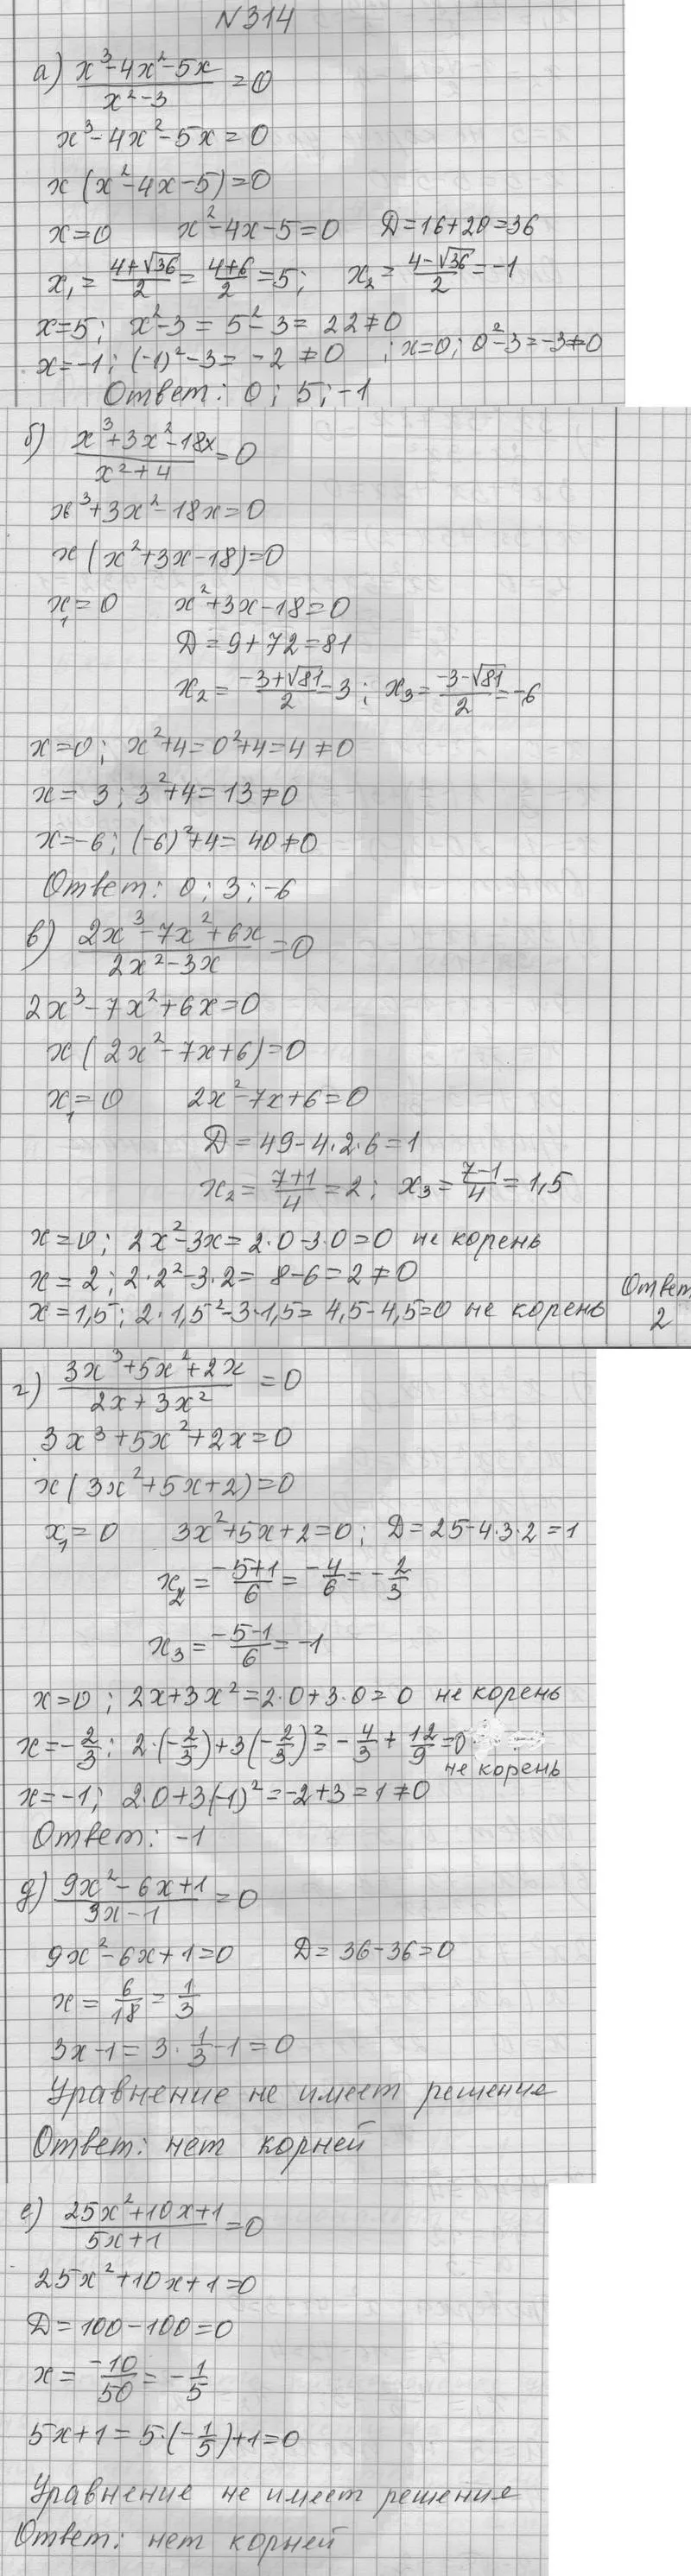 N 314
а) (x³-4x²-5x)/(x²-3) = 0
x³-4x²-5x = 0
x(x²-4x-5)=0
x=0 x²-4x-5=0 D=16+20=36
x₁ = (4+√36)/2 = (4+6)/2 = 5; x₂ = (4-√36)/2 = -1
x=5; x²-3 = 5²-3 = 22≠0
x=-1; (-1)²-3 = -2 ≠0 ; x=0; 0²-3=-3≠0
Ответ: 0; 5; -1
б) (x³+3x²-18x)/(x²+4) = 0
x³+3x²-18x=0
x(x²+3x-18)=0
x₁=0 x²+3x-18=0
D=9+72=81
x₂ = (-3+√81)/2 = 3; x₃ = (-3-√81)/2 = -6
x=0; x²+4=0²+4=4≠0
x= 3; 3²+4=13≠0
x=-6; (-6)²+4= 40≠0
Ответ: 0; 3; -6
в) (2x³-7x²+6x)/(2x²-3x) = 0
2x³-7x²+6x=0
x(2x²-7x+6)=0
x₁=0 2x²-7x+6=0
D=49-4·2·6=1
x₂ = (7+1)/4 = 2; x₃ = (7-1)/4 = 1,5
x=0; 2x²-3x=2·0-3·0=0 не корень
x=2; 2·2²-3·2= 8-6=2≠0
x=1,5; 2·1,5²-3·1,5= 4,5-4,5=0 не корень
Ответ
2
г) (3x³+5x²+2x)/(2x+3x²) = 0
3x³+5x²+2x=0
x(3x²+5x+2)=0
x₁=0 3x²+5x+2=0; D=25-4·3·2=1
x₂ = (-5+1)/6 = -4/6 = -2/3
x₃ = (-5-1)/6 = -1
x=0; 2x+3x²=2·0+3·0=0 не корень
x=-2/3; 2·(-2/3)+3(-2/3)²=-4/3+12/9=0
не корень
x=-1; 2·0+3(-1)²=-2+3=1≠0
Ответ: -1
д) (9x²-6x+1)/(3x-1) = 0
9x²-6x+1=0 D=36-36=0
x = 6/18 = 1/3
3x-1=3·1/3-1=0
Уравнение не имеет решение
Ответ: нет корней
е) (25x²+10x+1)/(5x+1) = 0
25x²+10x+1=0
D=100-100=0
x = -10/50 = -1/5
5x+1=5·(-1/5)+1=0
Уравнение не имеет решения
Ответ: нет корней